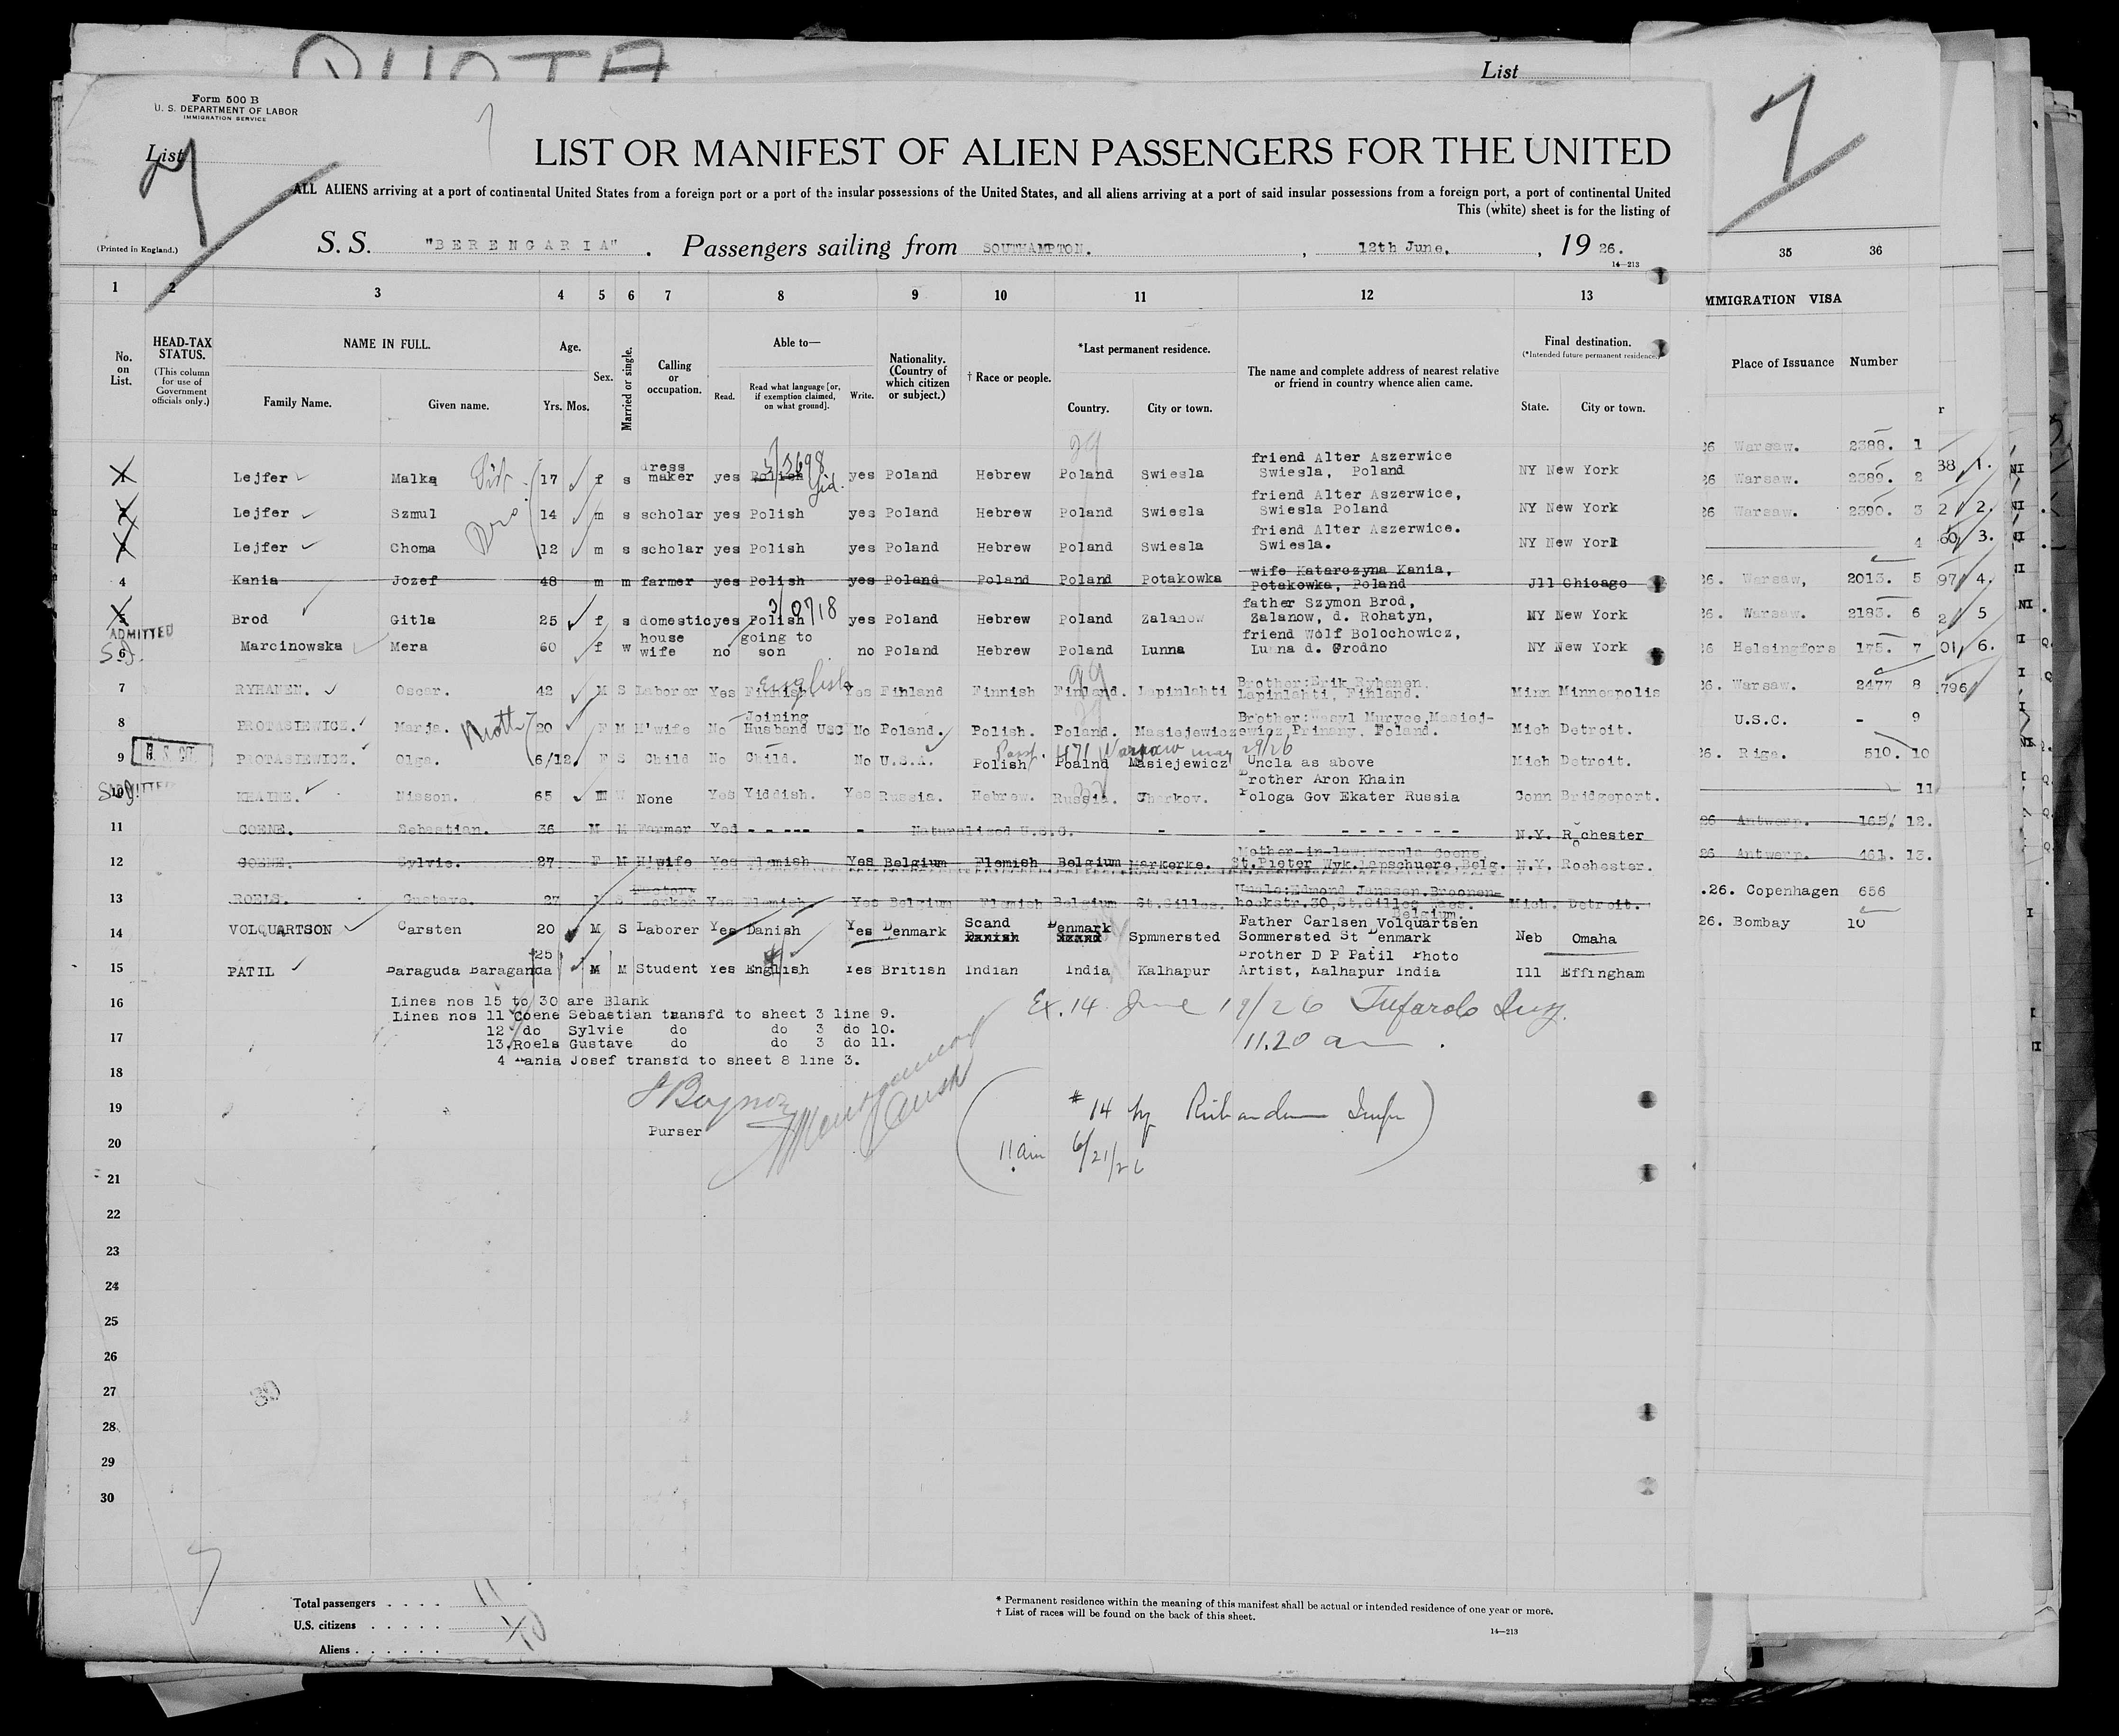 QUOTA
List
Form 500 B
U. S. DEPARTMENT OF LABOR
IMMIGRATION SERVICE
List
LIST OR MANIFEST OF ALIEN PASSENGERS FOR THE UNITED
ALL ALIENS arriving at a port of continental United States from a foreign port or a port of the insular possessions of the United States, and all aliens arriving at a port of said insular possessions from a foreign port, a port of continental United
This (white) sheet is for the listing of
(Printed in England.)
S. S. "BERENGARIA". Passengers sailing from SOUTHAMPTON. , 12th June. , 19 26.
14—213
1 2 3 4 5 6 7 8 9 10 11 12 13 35 36
MMIGRATION VISA
No. on List. HEAD-TAX STATUS. (This column for use of Government officials only.) NAME IN FULL. Family Name. Given name. Age. Yrs. Mos. Sex. Married or single. Calling or occupation. Able to— Read. Read what language [or, if exemption claimed, on what ground]. Write. Nationality. (Country of which citizen or subject.) † Race or people. *Last permanent residence. Country. City or town. The name and complete address of nearest relative or friend in country whence alien came. Final destination. (*Intended future permanent residence.) State. City or town. Place of Issuance Number
Lejfer Malka Sist 17 f s dress maker yes Polish Yid. yes Poland Hebrew Poland Swiesla friend Alter Aszerwice Swiesla, Poland NY New York
Lejfer Szmul Bro 14 m s scholar yes Polish yes Poland Hebrew Poland Swiesla friend Alter Aszerwice, Swiesla Poland NY New York
Lejfer Choma 12 m s scholar yes Polish yes Poland Hebrew Poland Swiesla friend Alter Aszerwice. Swiesla. NY New York
4 Kania Jozef 48 m m farmer yes Polish yes Poland Poland Poland Potakowka wife Katarozyna Kania, Potakowka, Poland Jll Chicago
5 Brod Gitla 25 f s domestic yes Polish yes Poland Hebrew Poland Zalanow father Szymon Brod, Zalanow, d. Rohatyn, MY New York
ADMITTED
6 Marcinowska Mera 60 f w house wife no going to son no Poland Hebrew Poland Lunna friend Wolf Bolochowicz, Lunna d. Grodno NY New York
7 RYHANEN. Oscar. 42 M S Laborer Yes Finnish English Yes Finland Finnish Finland. Lapinlahti Brother:Erik Ryhanen. Lapinlahti, Finland. Minn Minneapolis
8 PROTASIEWICZ. Marja. Moth 20 F M H'wife No Joining Husband USC No Poland. Polish. Poland. Masiejewicz Brother: Wasyl Muryce,Masiej-ewicz,Primary. Poland. Mich Detroit.
Passp. 471 Warsaw may 29/26
9 U.S. CIT. PROTASIEWICZ. Olga. 6/12. F S Child No Child. No U.S.A. Polish Poalnd Masiejewicz Uncla as above Mich Detroit.
ADMITTED
10 KHAINE. Nisson. 65 M W None Yes Yiddish. Yes Russia. Hebrew. Russia. Charkov. Brother Aron Khain Pologa Gov Ekater Russia Conn Bridgeport.
11 COENE. Sebastian. 36 M M Farmer Yed - - --- - Naturalised U.S.C. - - - - - - - - - N.Y. Rochester
12 COENE. Sylvie. 27 F M H'wife Yes Flemish Yes Belgium Flemish Belgium Markerke. Mother-in-law:Ursula Coene, St.Pieter Wyk.Lapschuere,Belg. N.Y. Rochester.
13 ROELS. Gustave. 27 M S Factory Worker Yes Flemish. Yes Belgium Flemish Belgium St.Gilles. Uncle:Edmond Janssen.Broonen-hoekstr.30,St.Gilles Waes. Belgium. Mich. Detroit.
14 VOLQUARTSON Carsten 20 M S Laborer Yes Danish Yes Denmark Scand Danish Denmark Spmmersted Father Carlsen Volquartsen Sommersted St Denmark Neb Omaha
15 PATIL Daraguda Baraganda 25 M M Student Yes English Yes British Indian India Kalhapur Brother D P Patil Photo Artist, Kalhapur India Ill Effingham
26 Warsaw. 2388. 1
26 Warsaw. 2389. 2
26 Warsaw. 2390. 3
4
26. Warsaw, 2013. 5
26. Warsaw. 2183. 6
26 Helsingfors 175. 7
26. Warsaw. 2477 8
U.S.C. - 9
26. Riga. 510. 10
11
26 Antwerp. 165. 12.
26 Antwerp. 461. 13.
.26. Copenhagen 656
26. Bombay 10
16
Lines nos 15 to 30 are Blank
Lines nos 11 Coene Sebastian transfd to sheet 3 line 9.
12 do Sylvie do do 3 do 10.
17
13.Roels Gustave do do 3 do 11.
4 Kania Josef transfd to sheet 8 line 3.
Ex. 14 June 19/26 Tufarolo Insp.
11.20 am.
18
19
Purser
# 14 by Richardson Inspr
11 am 6/21/26
20
21
22
23
24
25
26
27
28
29
30
Total passengers . . . . 11
U.S. citizens . . . . . 1
Aliens . . . . . . 10
* Permanent residence within the meaning of this manifest shall be actual or intended residence of one year or more.
† List of races will be found on the back of this sheet.
14—213